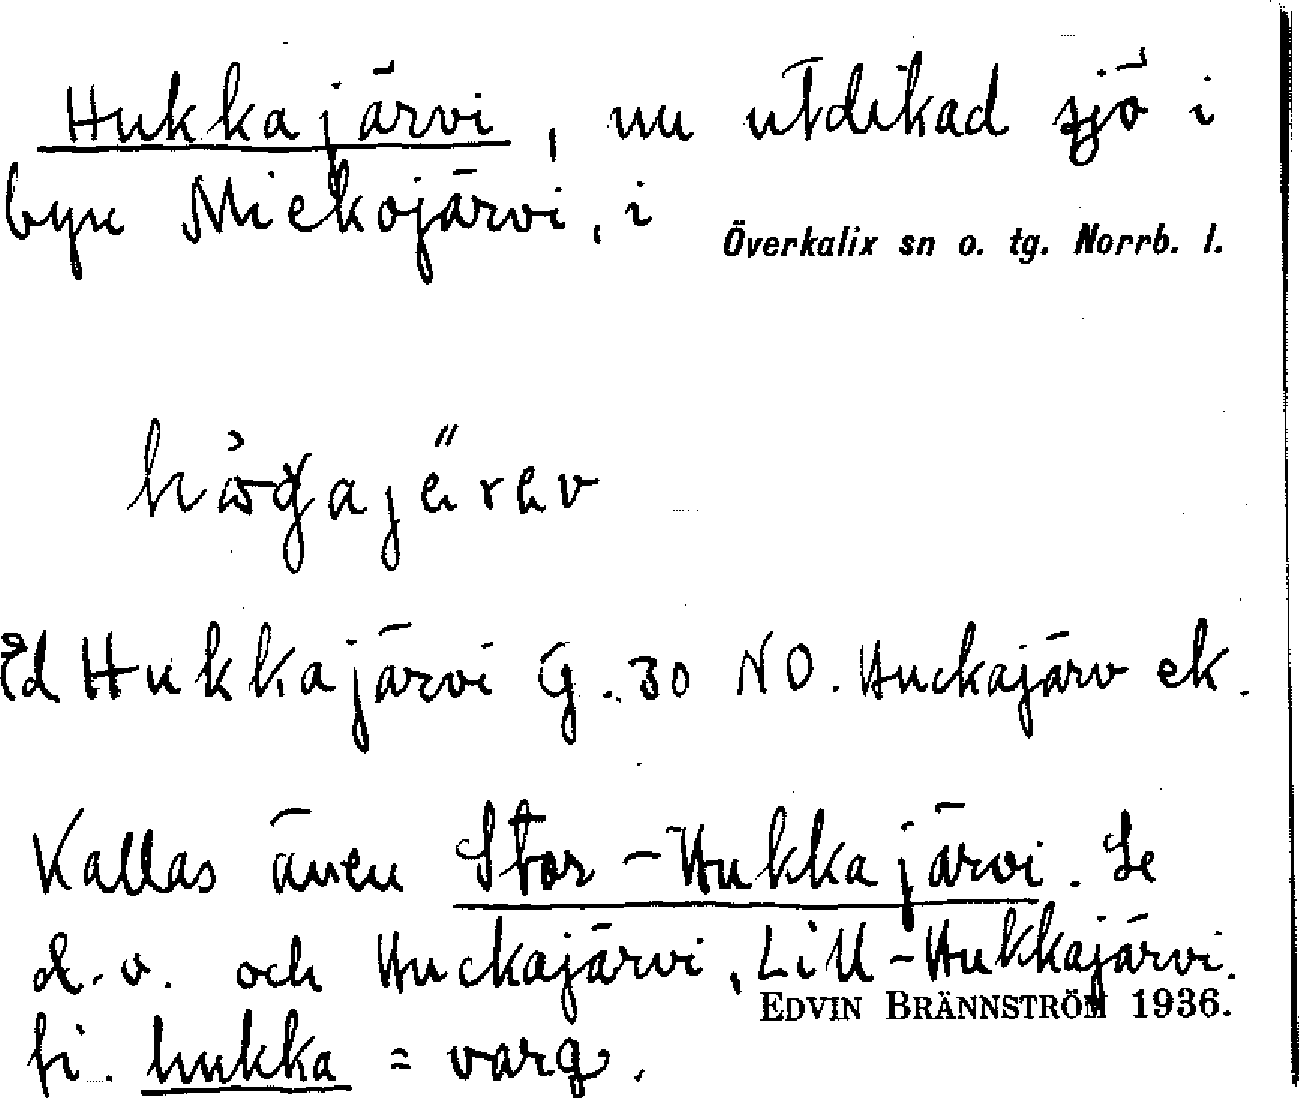 Hukkajärvi, nu utdikad sjö i
byn Miekojärvi, i Överkalix sn o. tg. Norrb. l.
Ed Hukkajärvi G. 30 NO. Huckajärv ek.
Kallas även Stor-Hukkajärvi. Se
d.o. och Huckajärvi, Lill-Hukkajärvi.
EDVIN BRÄNNSTRÖM 1936.
fi. hukka = varg.